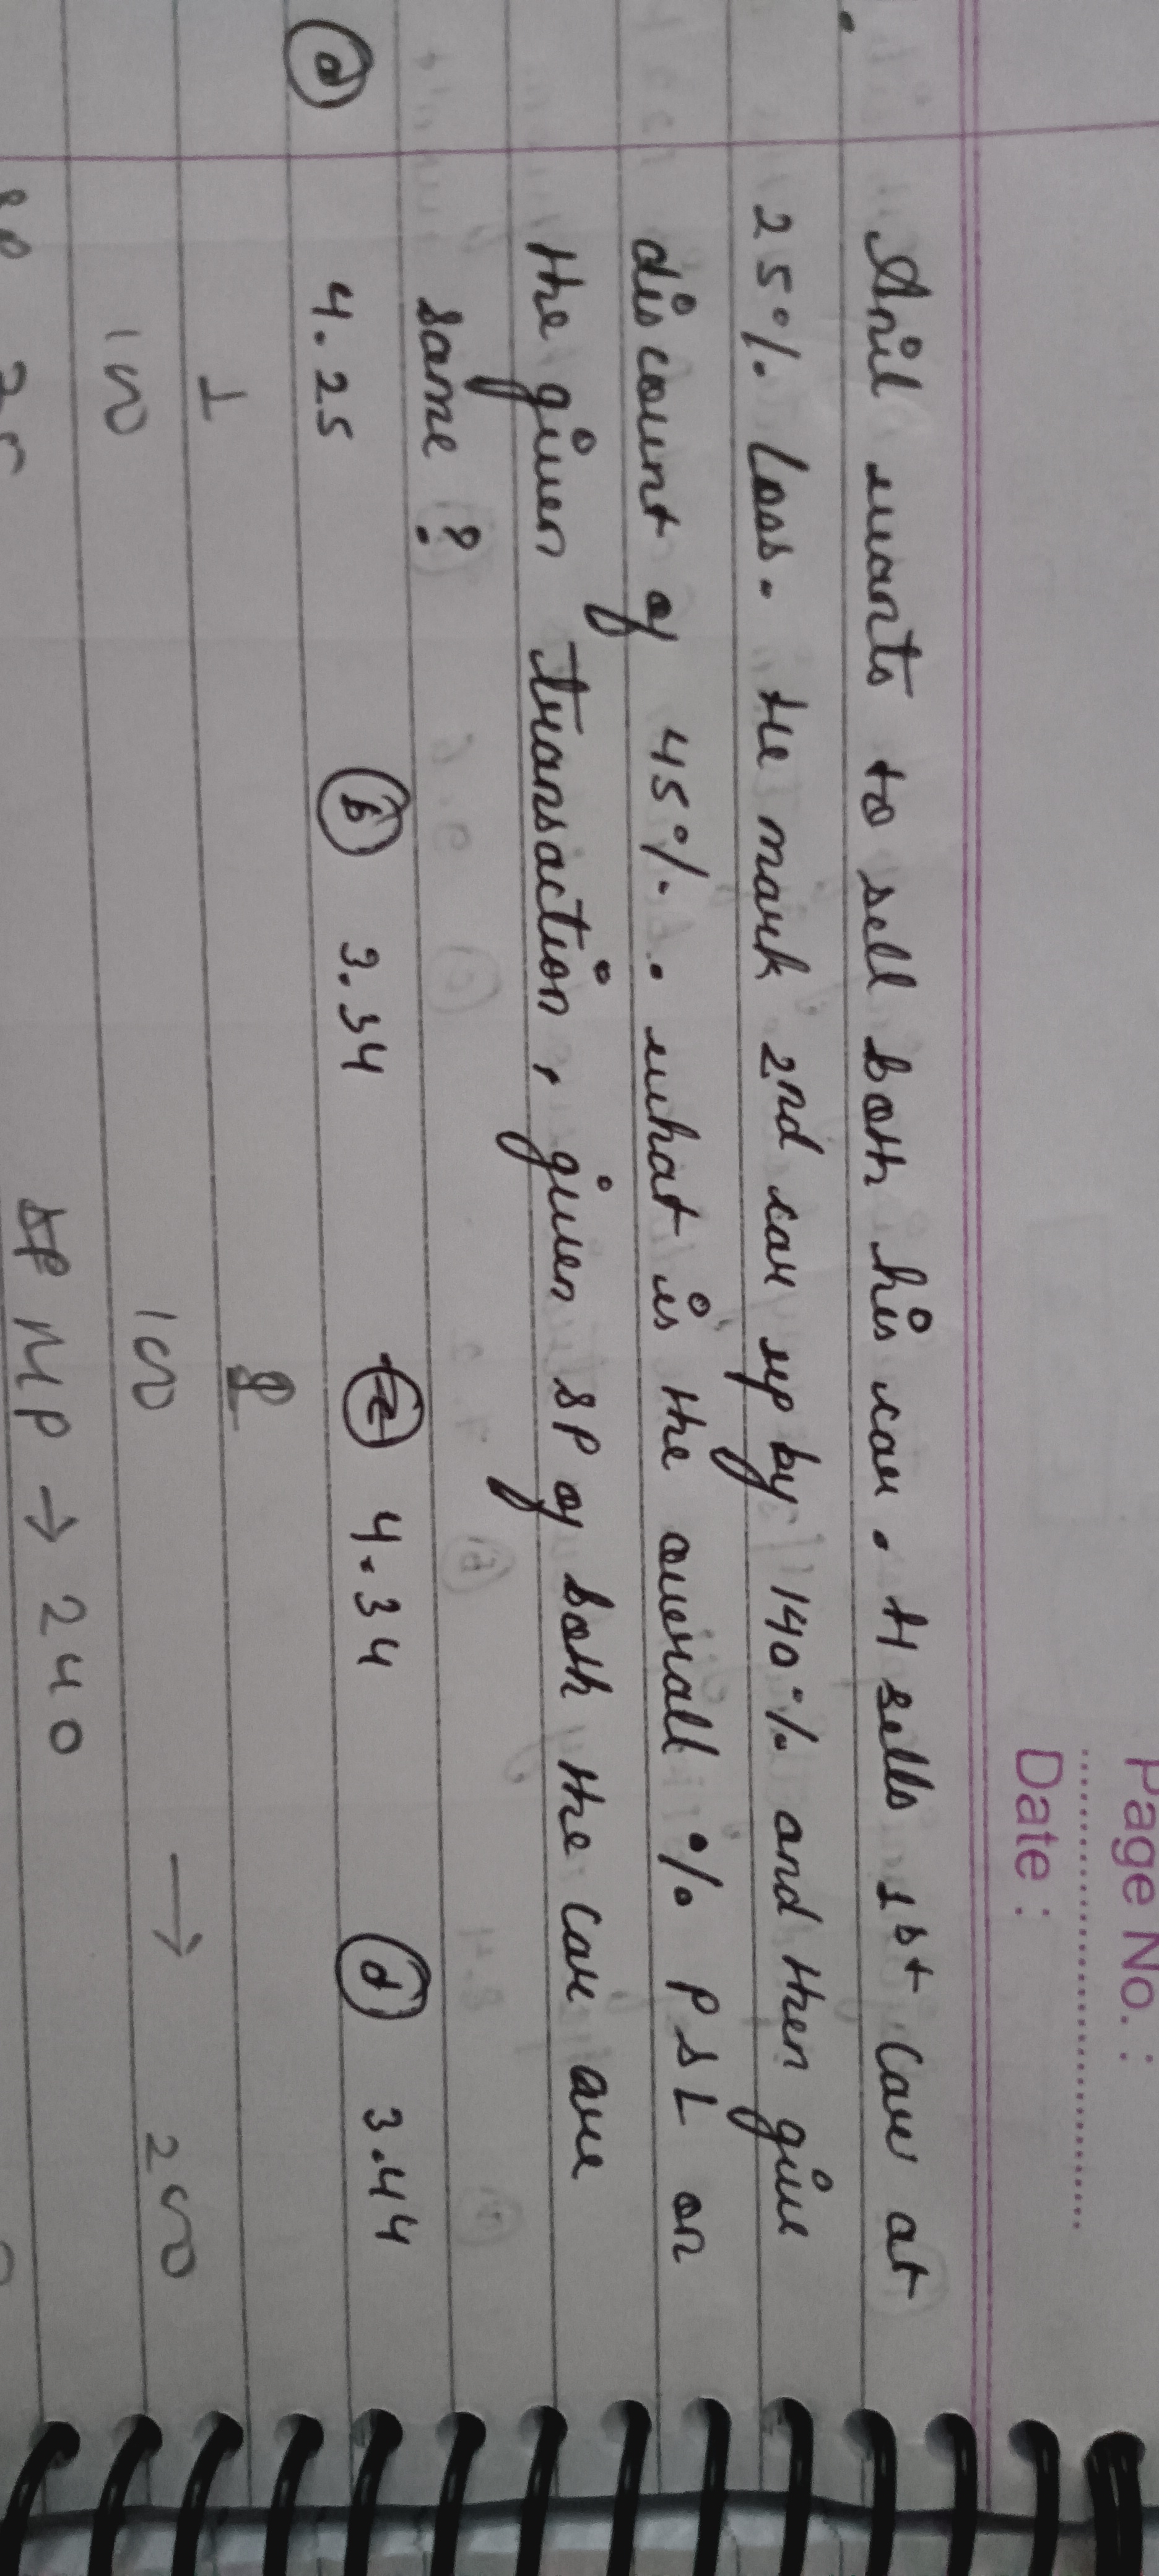 Page No. :
Date :
Anil wants to sell both his car. H sells 1st Car at
25% loss. He mark 2nd car up by 140% and then give
discount of 45%. what is the overall % P & L on
the given transaction, given SP of both the car are
same ?
(a) 4.25 (b) 3.34 (c) 4.34 (d) 3.44
1 2
100 100 → 200
MP → 240